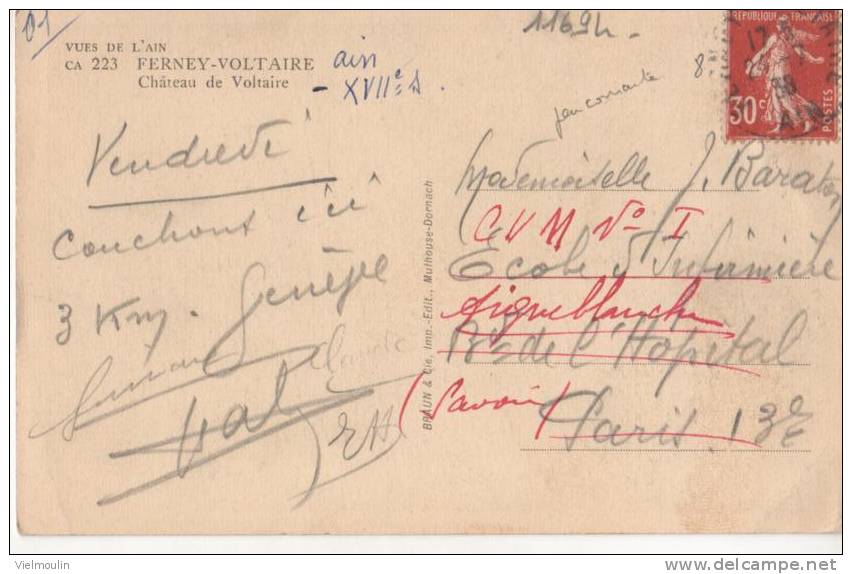 01
1169h
VUES DE L'AIN
CA 223 FERNEY-VOLTAIRE
Château de Voltaire
ain
- XVIIe s
peu courante
8
RÉPUBLIQUE FRANÇAISE
30c
POSTES
AIN
Vendredi
couchons ici
3 Km. Genève
BRAUN & Cie, Imp.-Edit., Mulhouse-Dornach
Mademoiselle J. Baraton
C V M No I
Ecole d'Infirmière
Aigueblanche
Bd de l'Hopital
(Savoie)
Paris 13e
Vielmoulin
delcampe.net